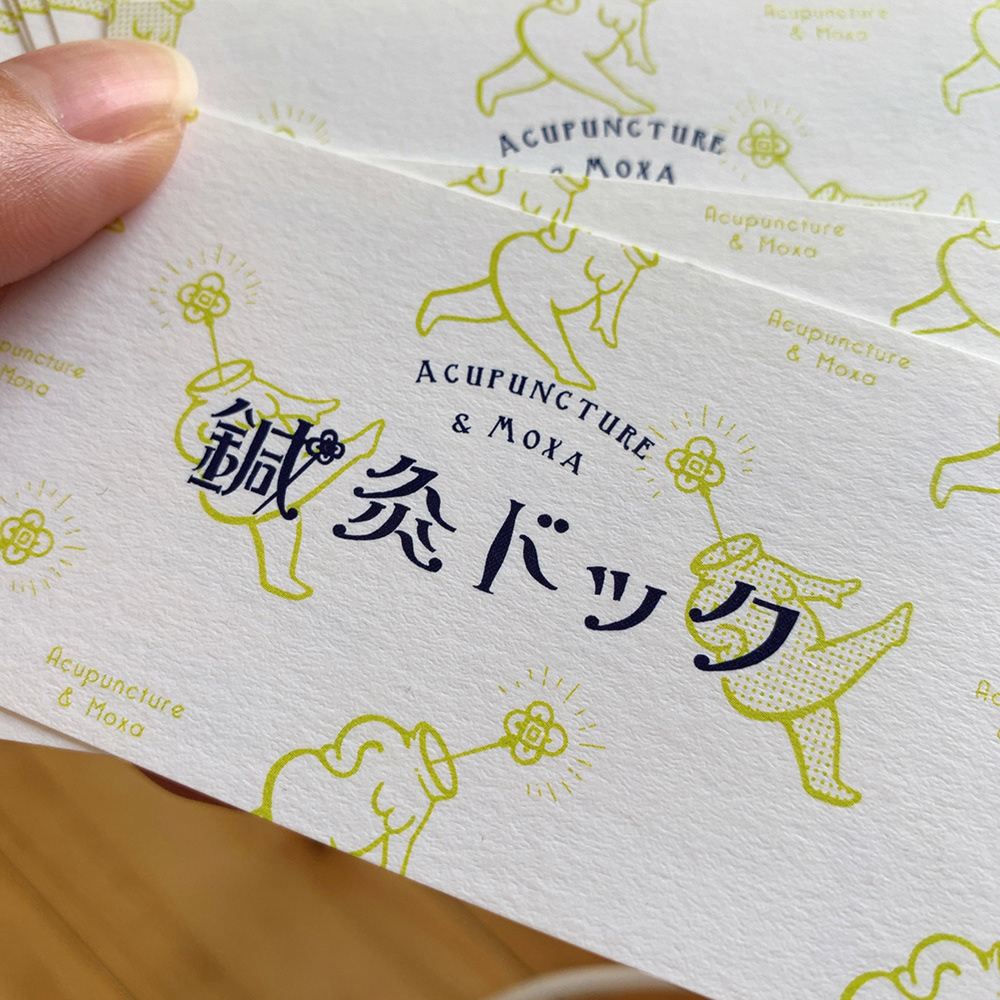 Acupuncture
& Moxa
ACUPUNCTURE
& MOXA
Acupuncture
& Moxa
Acupuncture
& Moxa
puncture
Moxa
ACUPUNCTURE
& MOXA
鍼灸ドック
Acupuncture
& Moxa